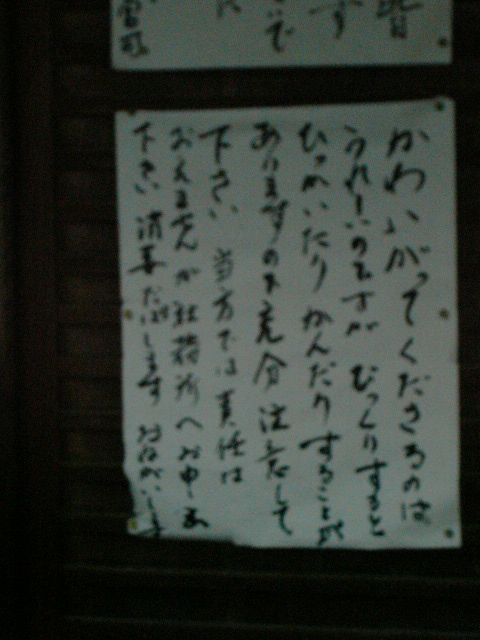 す
いで
に
宮司
かわいがってくださるのは
うれしいのですが びっくりすると
ひっかいたり かんだりすることが
ありますので充分注意して
下さい 当方では責任は
おえませんが社務所へお申し出
下さい 消毒だけします おねがいします